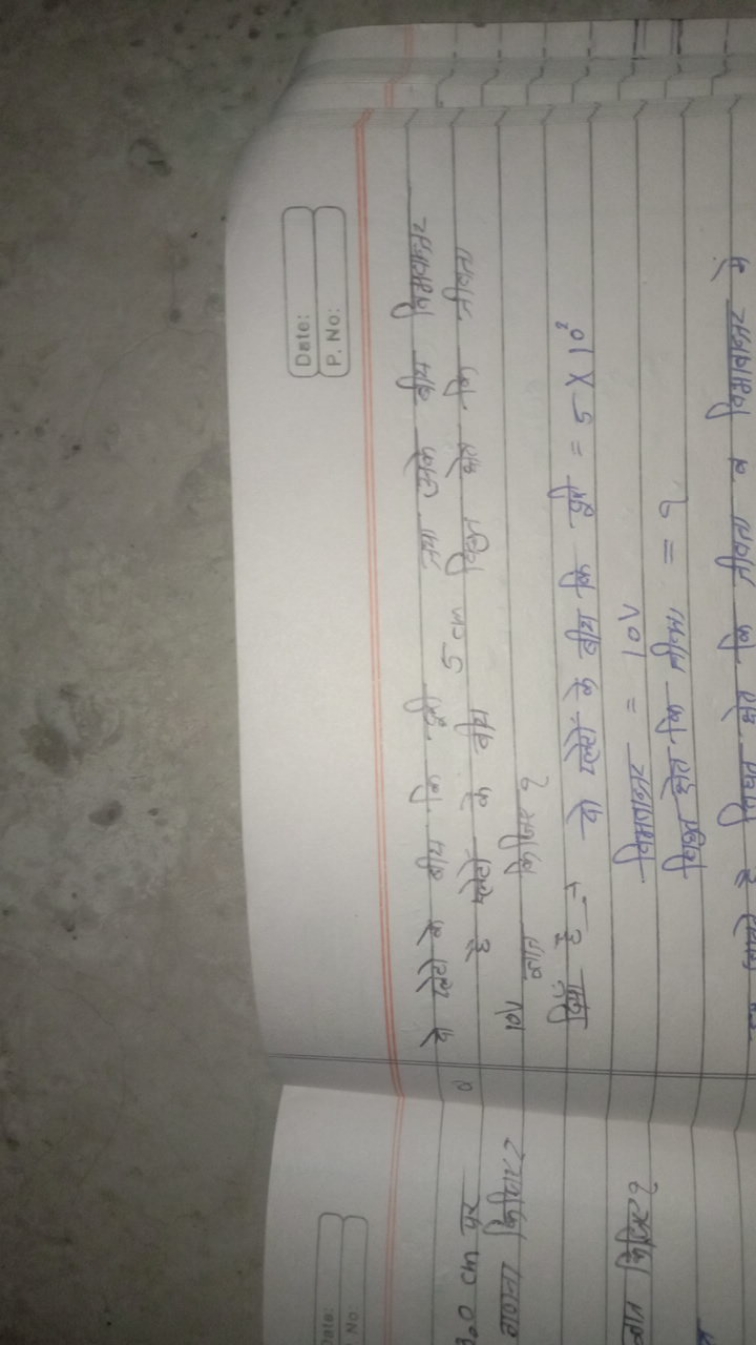 Date:
P. No:
दो प्लेटो के बीच कि दूरी 5 cm तथा उसके बीच विभवान्तर
10V है प्लेटो के बीच विद्युत क्षेत्र कि तीव्रता
ज्ञात किजिए ?
दिया है → दो प्लेटों के बीच कि दूरी = 5 X 10²
विभवान्तर = 10V
विद्युत क्षेत्र कि तीव्रता = ?
है विद्युत क्षेत्र कि तीव्रता व विभवान्तर में
Date:
No:
3.0 cm पर
गणना किजिए ?
ज्ञात किजिए ?